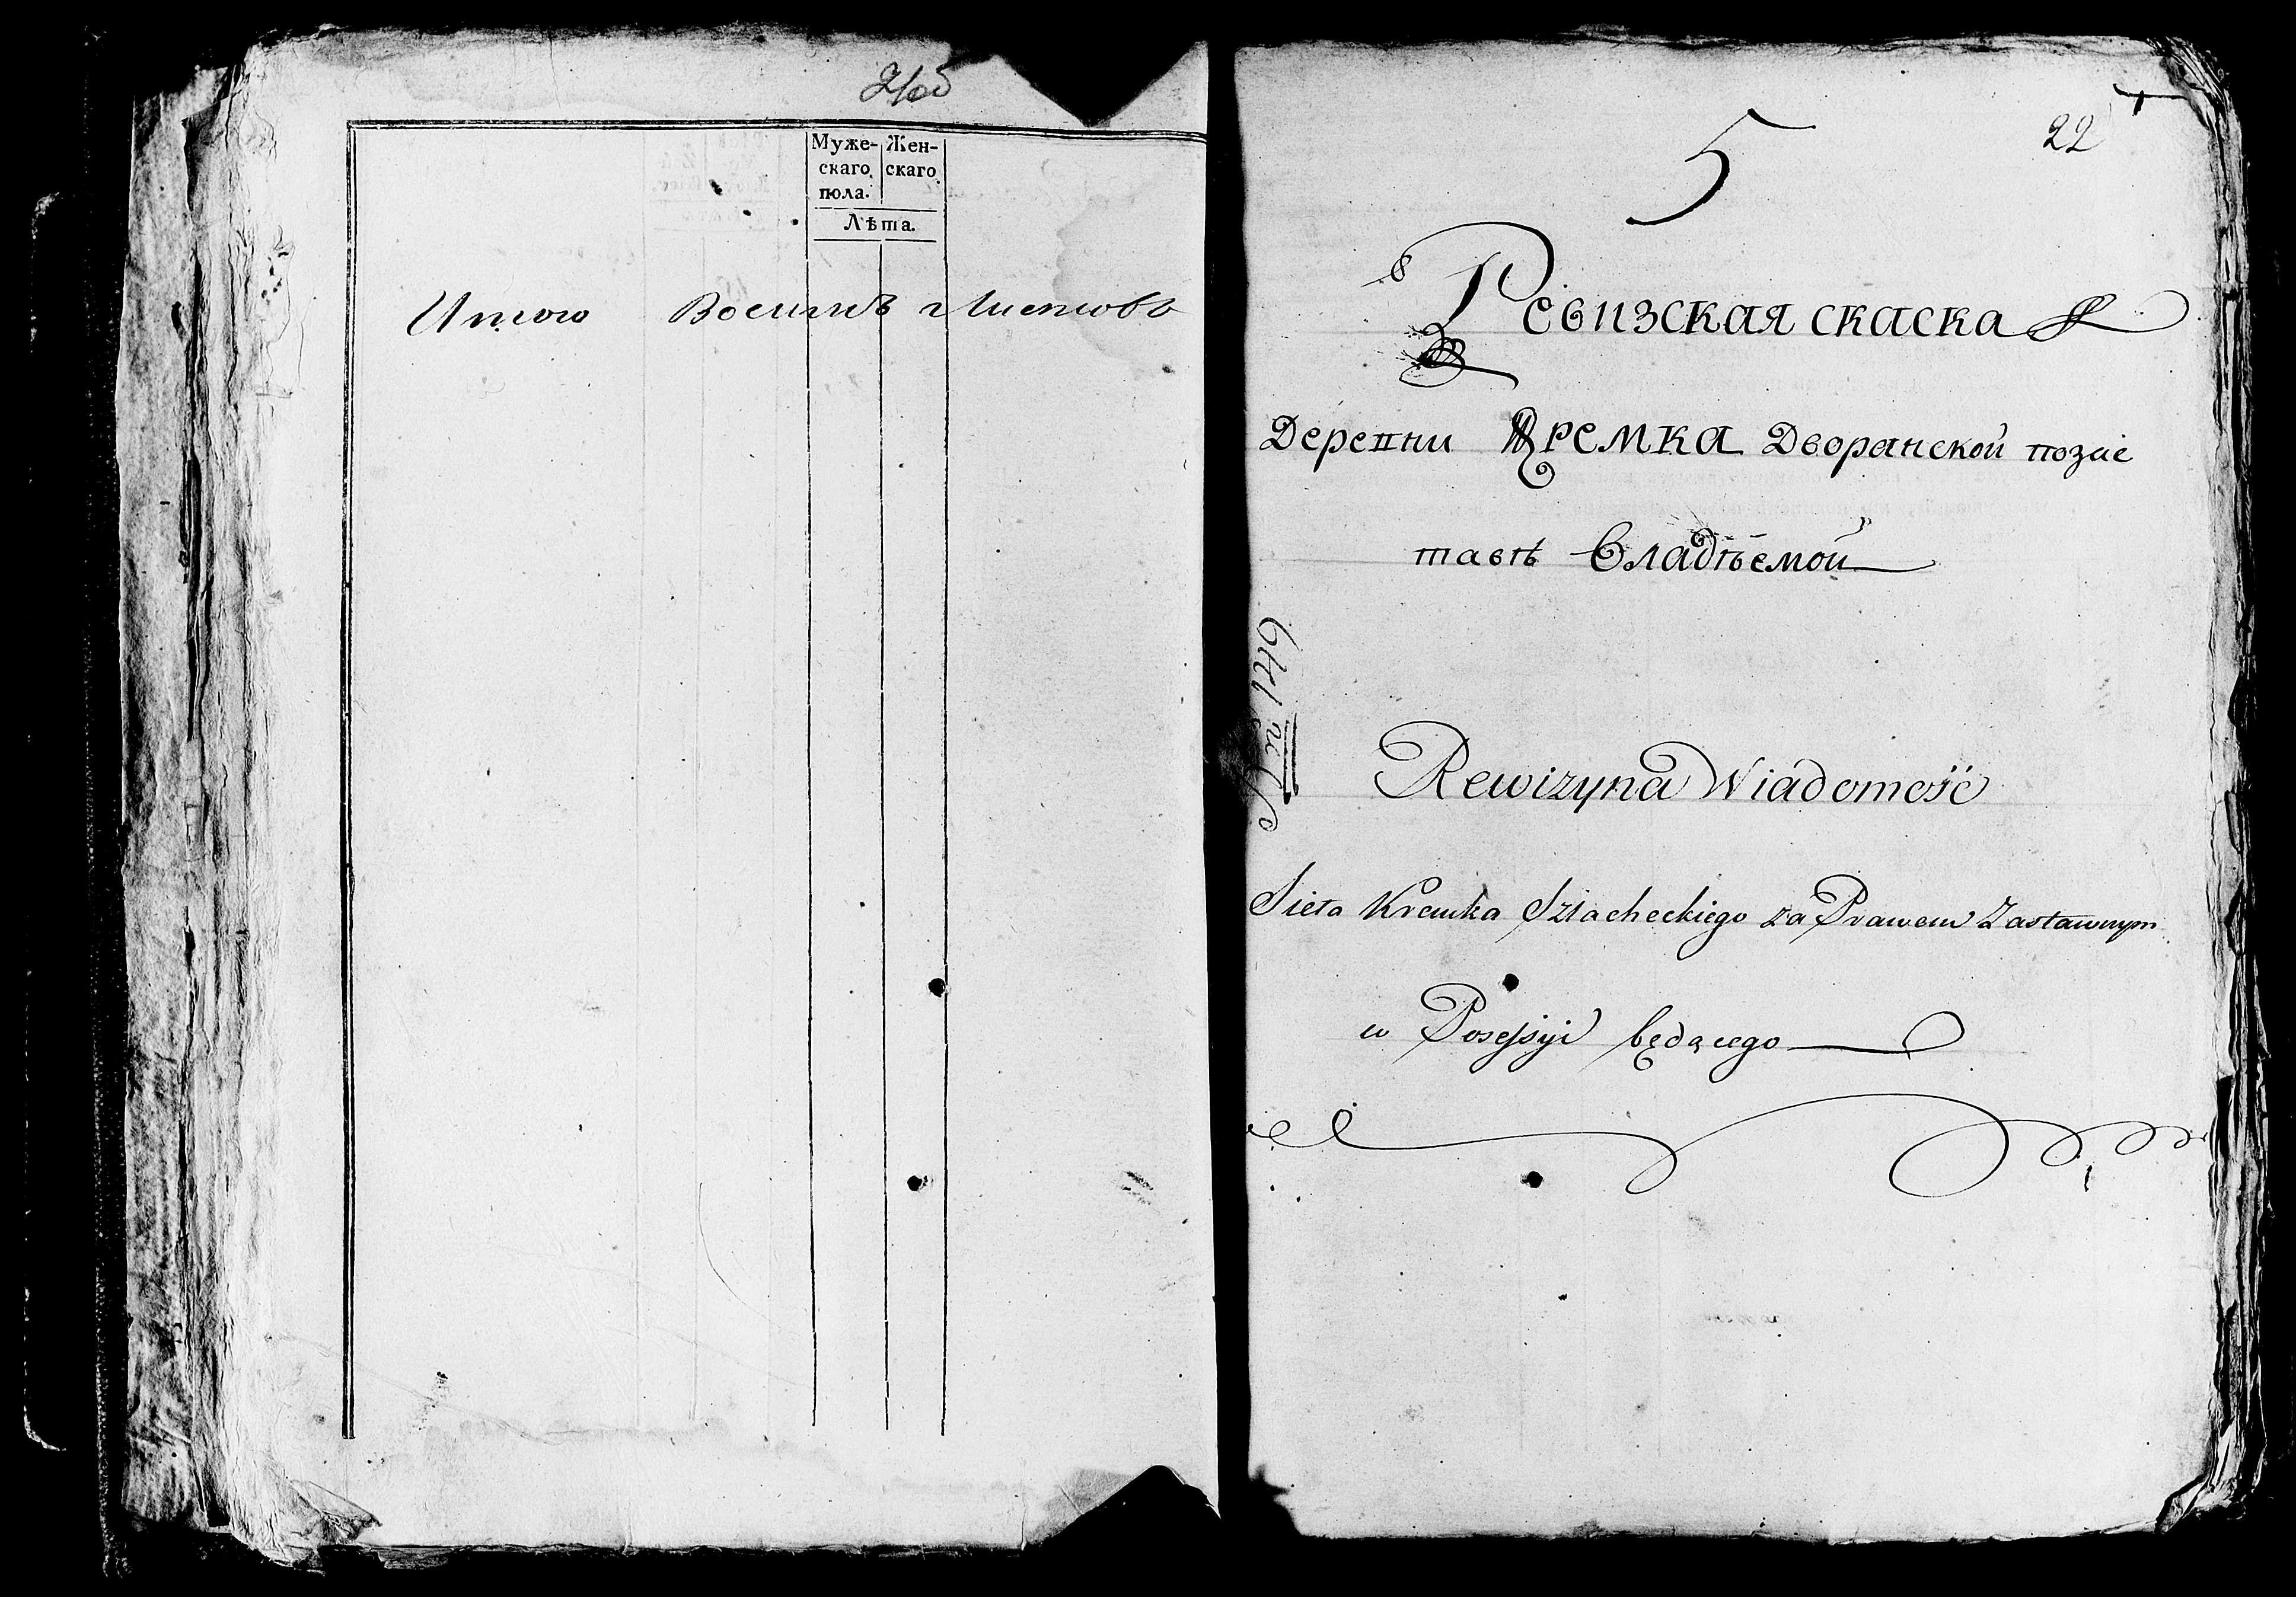 21об
Муже-
скаго
пола.
Жен-
скаго
Лѣта.
Итого Восемъ Листовъ
22
5
Ревизская скаска
Деревни Кремка Дворянской позас
тавѣ Владѣемой
Rewizyna Wiadomość
Sieła Kremka Szlacheckiego za Prawem Zastawnym
w Posessyi będącego